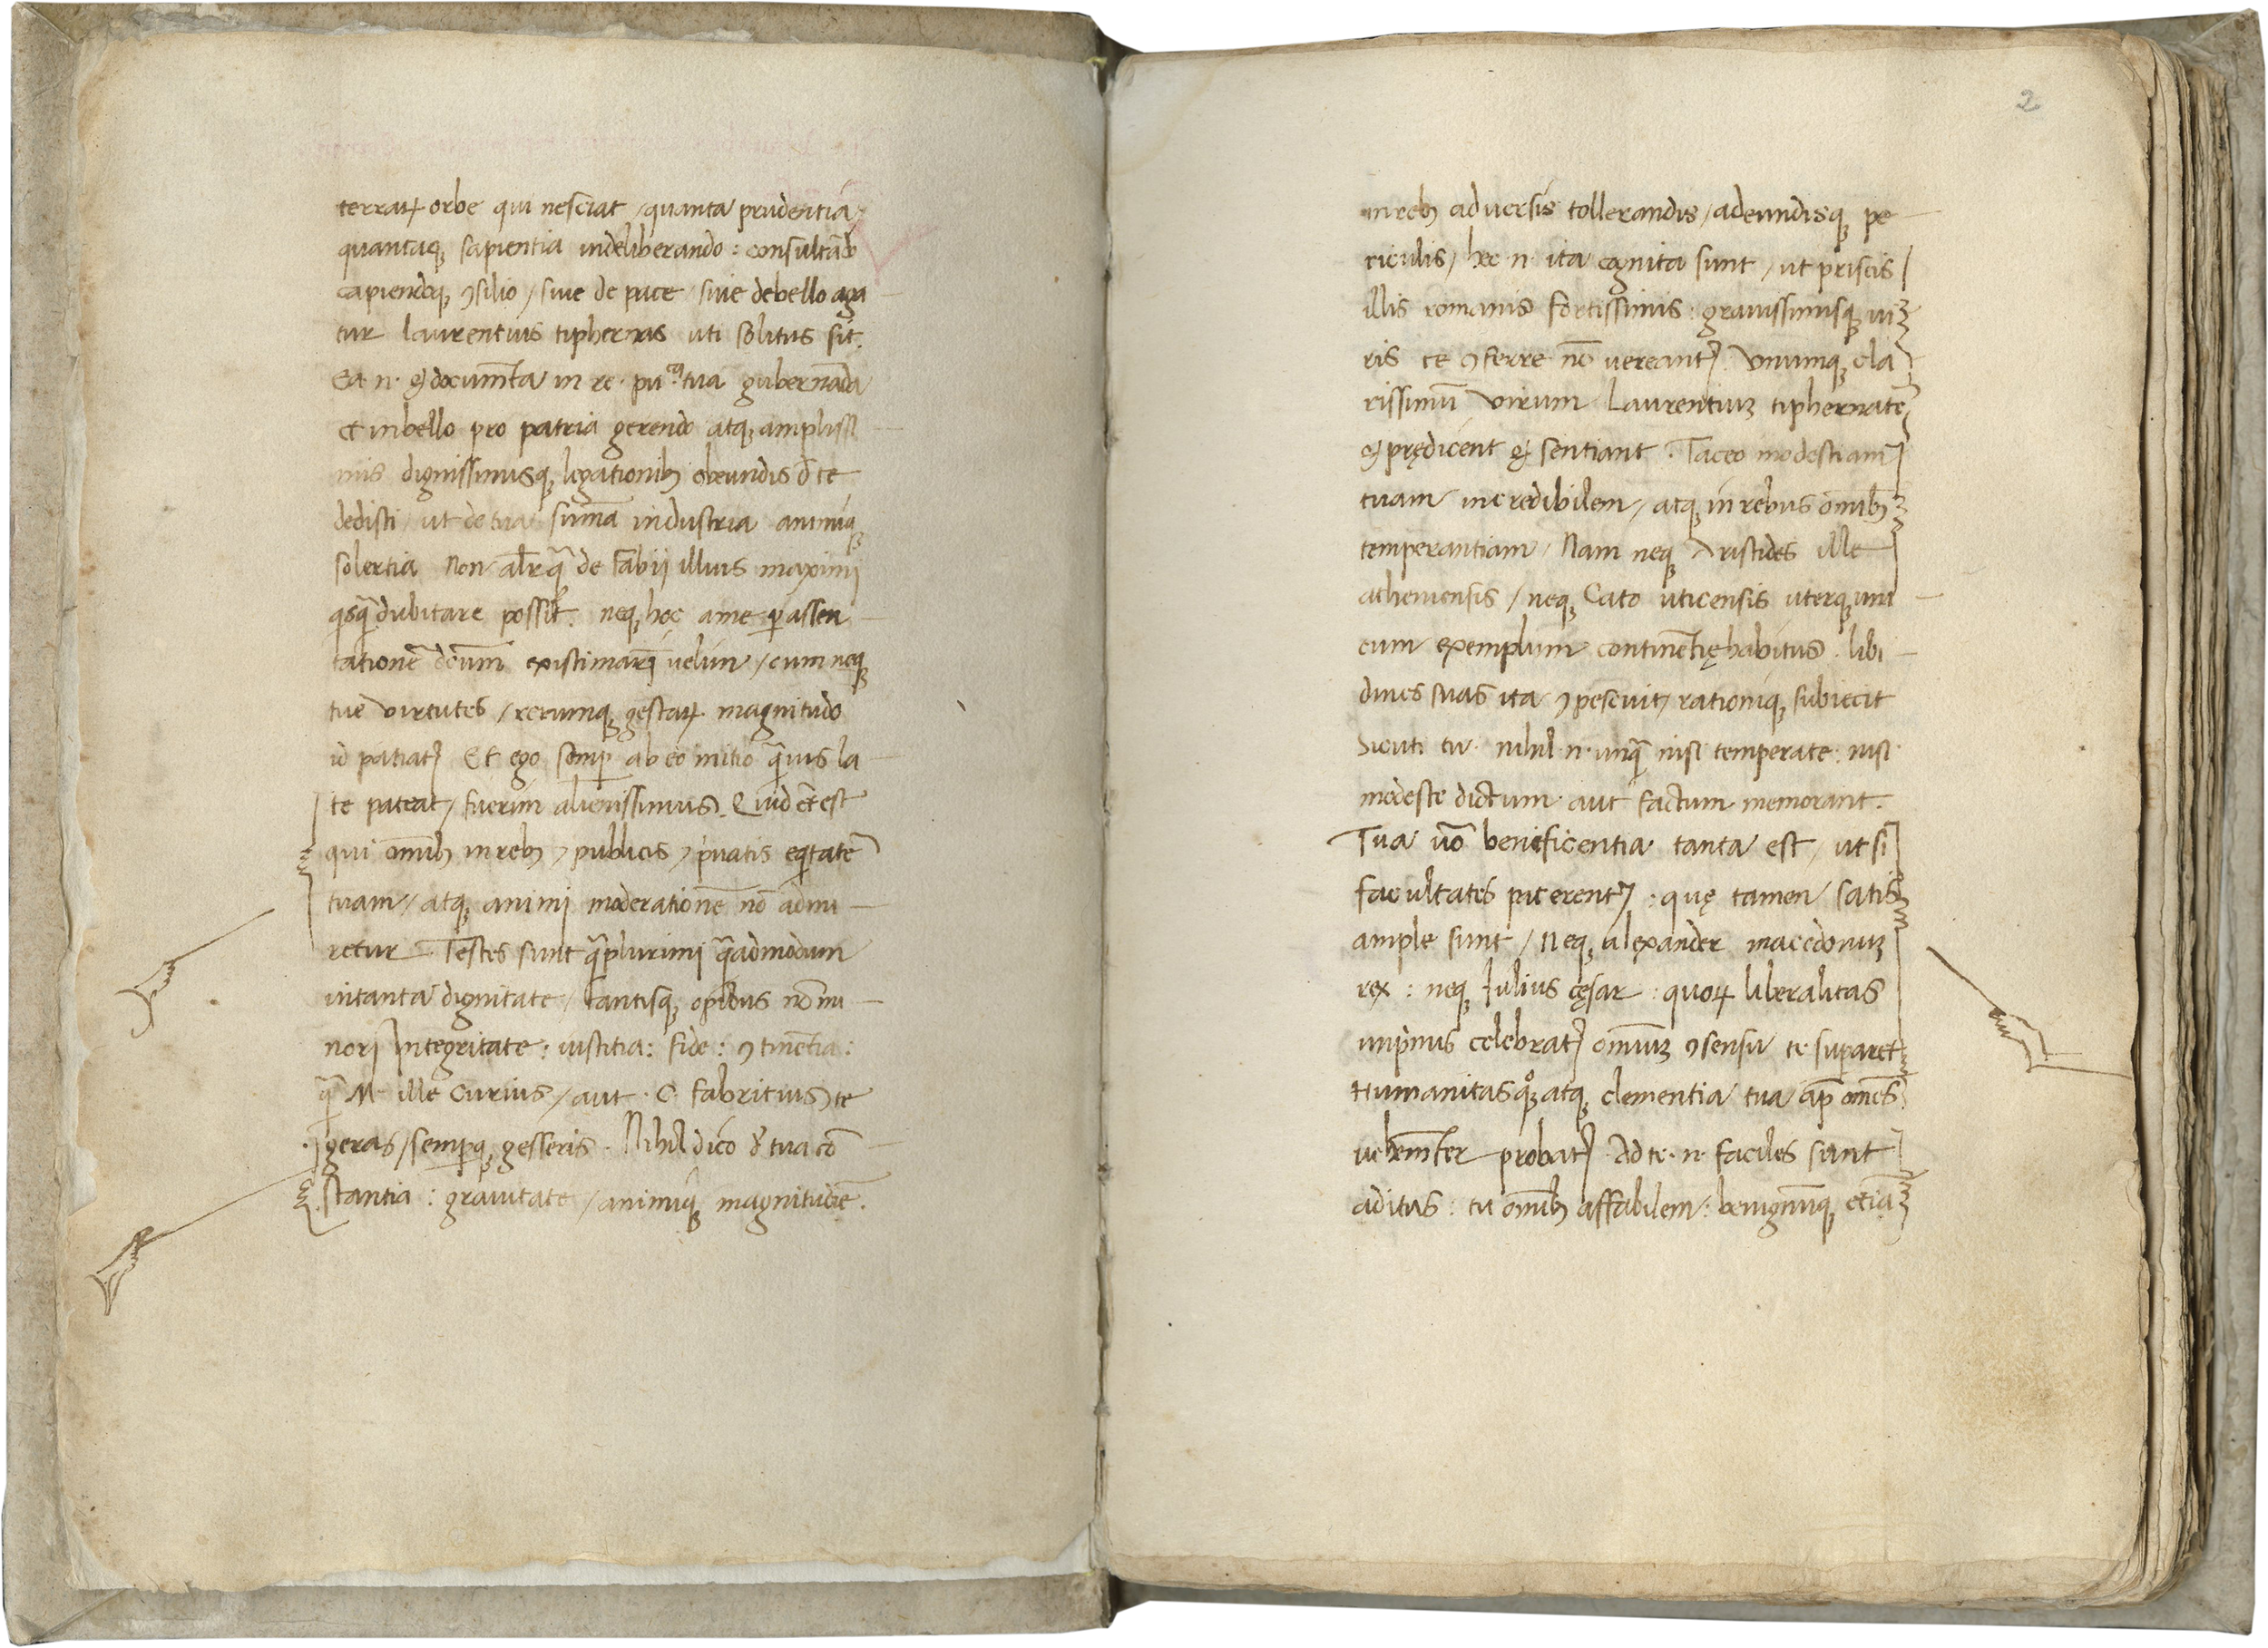 terraꝝ orbe qui nesciat / quanta prudentia /
quantaqꝫ sapientia indeliberando : consultādo
capiendoqꝫ ꝯsilio / siue de pace / siue debello aga
tur laurentius tiphernas uti solitus sit.
Ea n. documēta in re. pu.ca tua gubernāda
et inbello pro patria gerendo atqꝫ amplissi
mis dignissimisqꝫ legationibꝫ obeundis d̄ te
dedisti / ut de tua suma industria animiqꝫ
solertia Non alr̄ qꝫ̄ de Fabii illius maximi
qsqꝫ̄ dubitare possit. neqꝫ hec ame ꝑ assen
tationē dcum existimari uelim / cum neqꝫ
tue virtutes / rerumqꝫ gestaꝝ magnitudo
id patiatʳ Et ego semꝑ ab eo initio qꝫ̄uis la
te pateat / fuerim alienissimus. Quid et est
qui omībꝫ inrebꝫ ⁊ publicis ⁊ puatis eqtatē
tuam / atqꝫ animi moderationē nō admi
retur Testes sunt qꝫ̄plurimi qꝫ̄admodum
intanta dignitate / tantisqꝫ opibus nō mi
nori Integritate : iustitia : fide : ꝯtinētia :
qꝫ̄ M. ille Curius / aut. C. fabritius te
geras / sempqꝫ gesseris. Nihil dico d̄ tua cō
stantia : grauitate / animiqꝫ magnitudīe.
2
inrebꝫ aduersis tollerandis / adeundisqꝫ pe
riculis / hec n. ita cognita sunt / ut priscis
illis romanis fortissimis : grauissimisqꝫ ui
ris te ꝯferre nō uereantʳ. Vnumqꝫ cla
rissimū virum Laurentiuꝫ tiphernatē
prędicent sentiant. Taceo modestiam
tuam incredibilem / atqꝫ in rebus omibꝫ
temperantiam / Nam neqꝫ Aristides ille
atheniensis / neqꝫ Cato uticensis uterqꝫ uni
cum exemplum continētię habitus. libi
dines suas ita ꝯpescuit / rationiqꝫ subiecit
Sicuti tu. nihil n. unqꝫ̄ nisi temperate : nisi
modeste dictum aut factum memorant.
Tua uō beneficentia tanta est / ut si
facultates paterentʳ : quę tamen satis
ample sunt / Neqꝫ alexander macedonuꝫ
rex : neqꝫ Iulius cęsar : quoꝝ liberalitas
inpimis celebratʳ omniuꝫ ꝯsensu te supaet
Humanitas qꝫo atqꝫ clementia tua ap̄ omēs
uehemēter probatʳ. Ad te. n. faciles sunt
aditus : tu omībꝫ affabilem : benignūqꝫ etiā